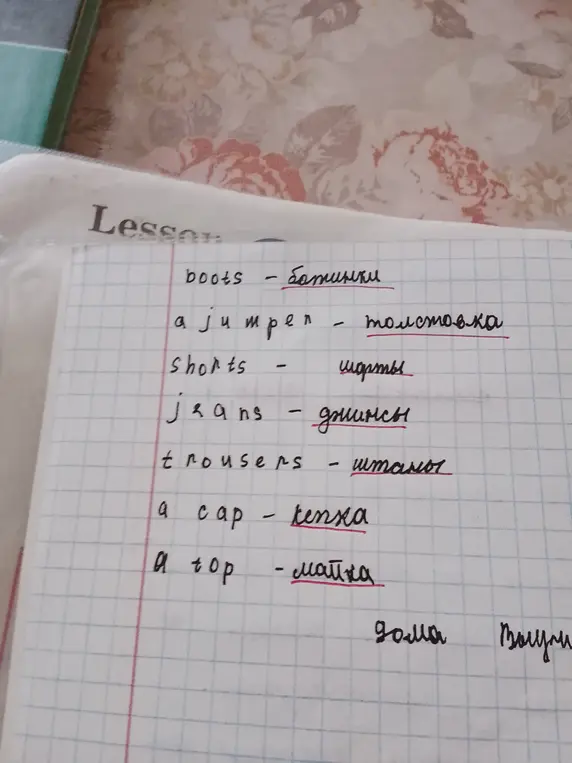 Lesson
boots - ботинки
a jumper - толстовка
shorts - шорты
jeans - джинсы
trousers - штаны
a cap - кепка
a top - майка
дома